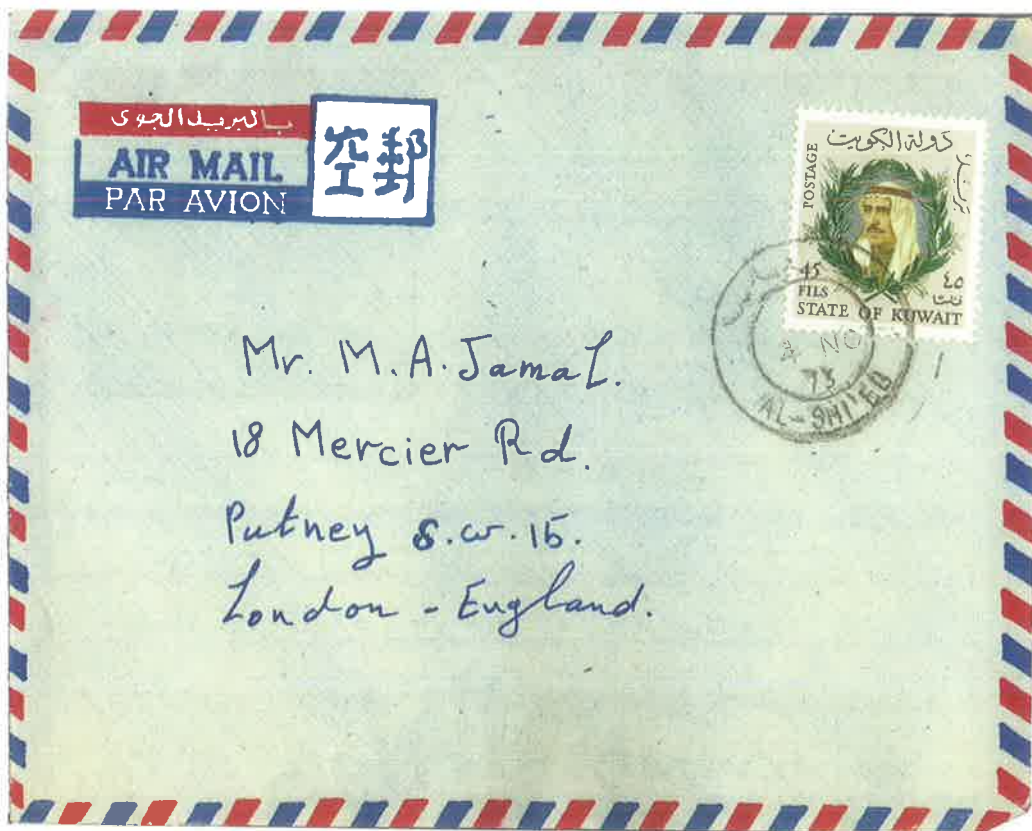 بالبريد الجوى
AIR MAIL
PAR AVION
空郵
دولة الكويت
POSTAGE
بريد
45
FILS
٤٥
فلسا
STATE OF KUWAIT
4 NO
73
Mr. M. A. Jamal.
18 Mercier Rd.
Putney S.W. 15.
London - England.